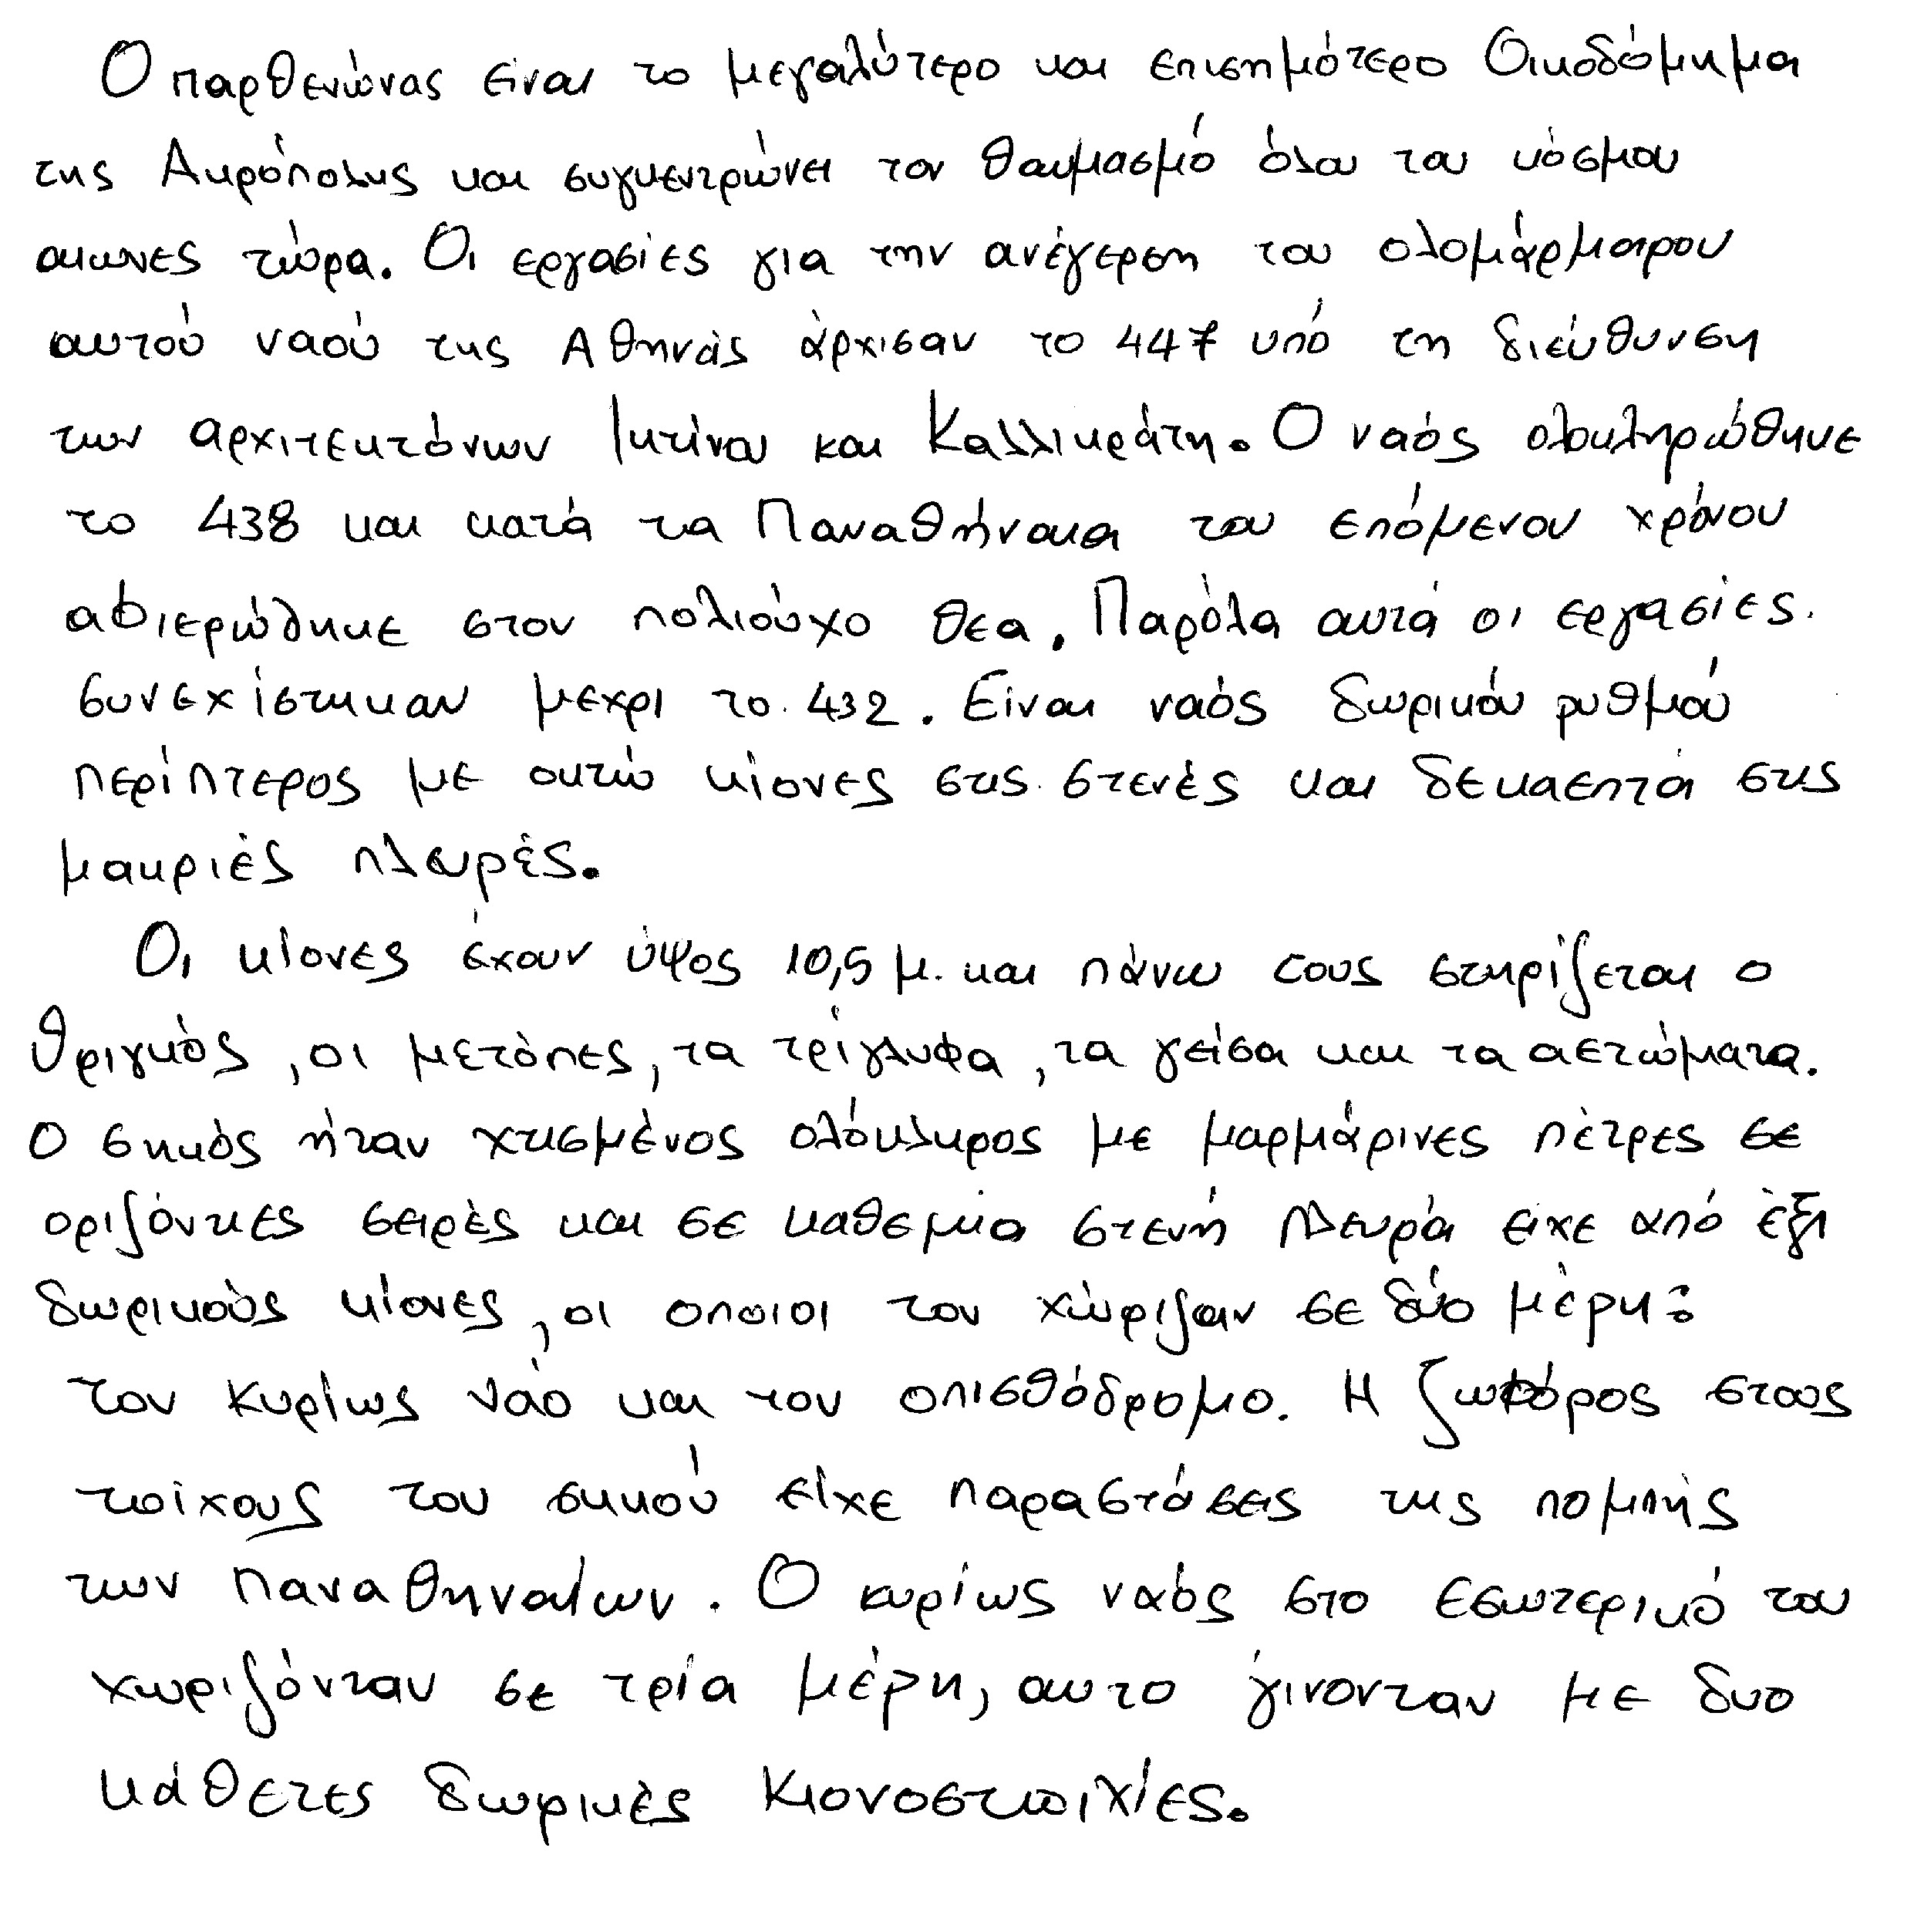 Ο παρθενώνας είναι το μεγαλύτερο και επισημότερο Οικοδόμημα
της Ακρόπολης και συγκεντρώνει τον θαυμασμό όλου του κόσμου
αιώνες τώρα. Οι εργασίες για την ανέγερση του ολομάρμαρου
αυτού ναού της Αθηνάς άρχισαν το 447 υπό τη διεύθυνση
των αρχιτεκτόνων Ικτίνου και Καλλικράτη. Ο ναός ολοκληρώθηκε
το 438 και κατά τα Παναθήναια του επόμενου χρόνου
αφιερώθηκε στον πολιούχο θεα. Παρόλα αυτά οι εργασίες
συνεχίστηκαν μεχρι το 432. Είναι ναός δωρικού ρυθμού
περίπτερος με οκτώ κίονες στις στενές και δεκαεπτά στις
μακριές πλευρές.
Οι κίονες έχουν ύψος 10,5 μ. και πάνω τους στηρίζεται ο
θριγκός, οι μετόπες, τα τρίγλυφα, τα γείσα και τα αετώματα.
Ο σηκός ήταν χτισμένος ολόκληρος με μαρμάρινες πέτρες σε
οριζόντιες σειρές και σε καθεμία στενή πλευρά είχε από έξι
δωρικούς κίονες, οι οποιοι τον χώριζαν σε δύο μέρη:
τον κυρίως ναό και τον οπισθόδρομο. Η ζωφόρος στους
τοίχους του σηκού είχε παραστάσεις της πομπής
των παναθηναίων. Ο κυρίως ναός στο εσωτερικό του
χωριζόνταν σε τρία μέρη, αυτο γίνονταν με δυο
κάθετες δωρικές κιονοστοιχίες.